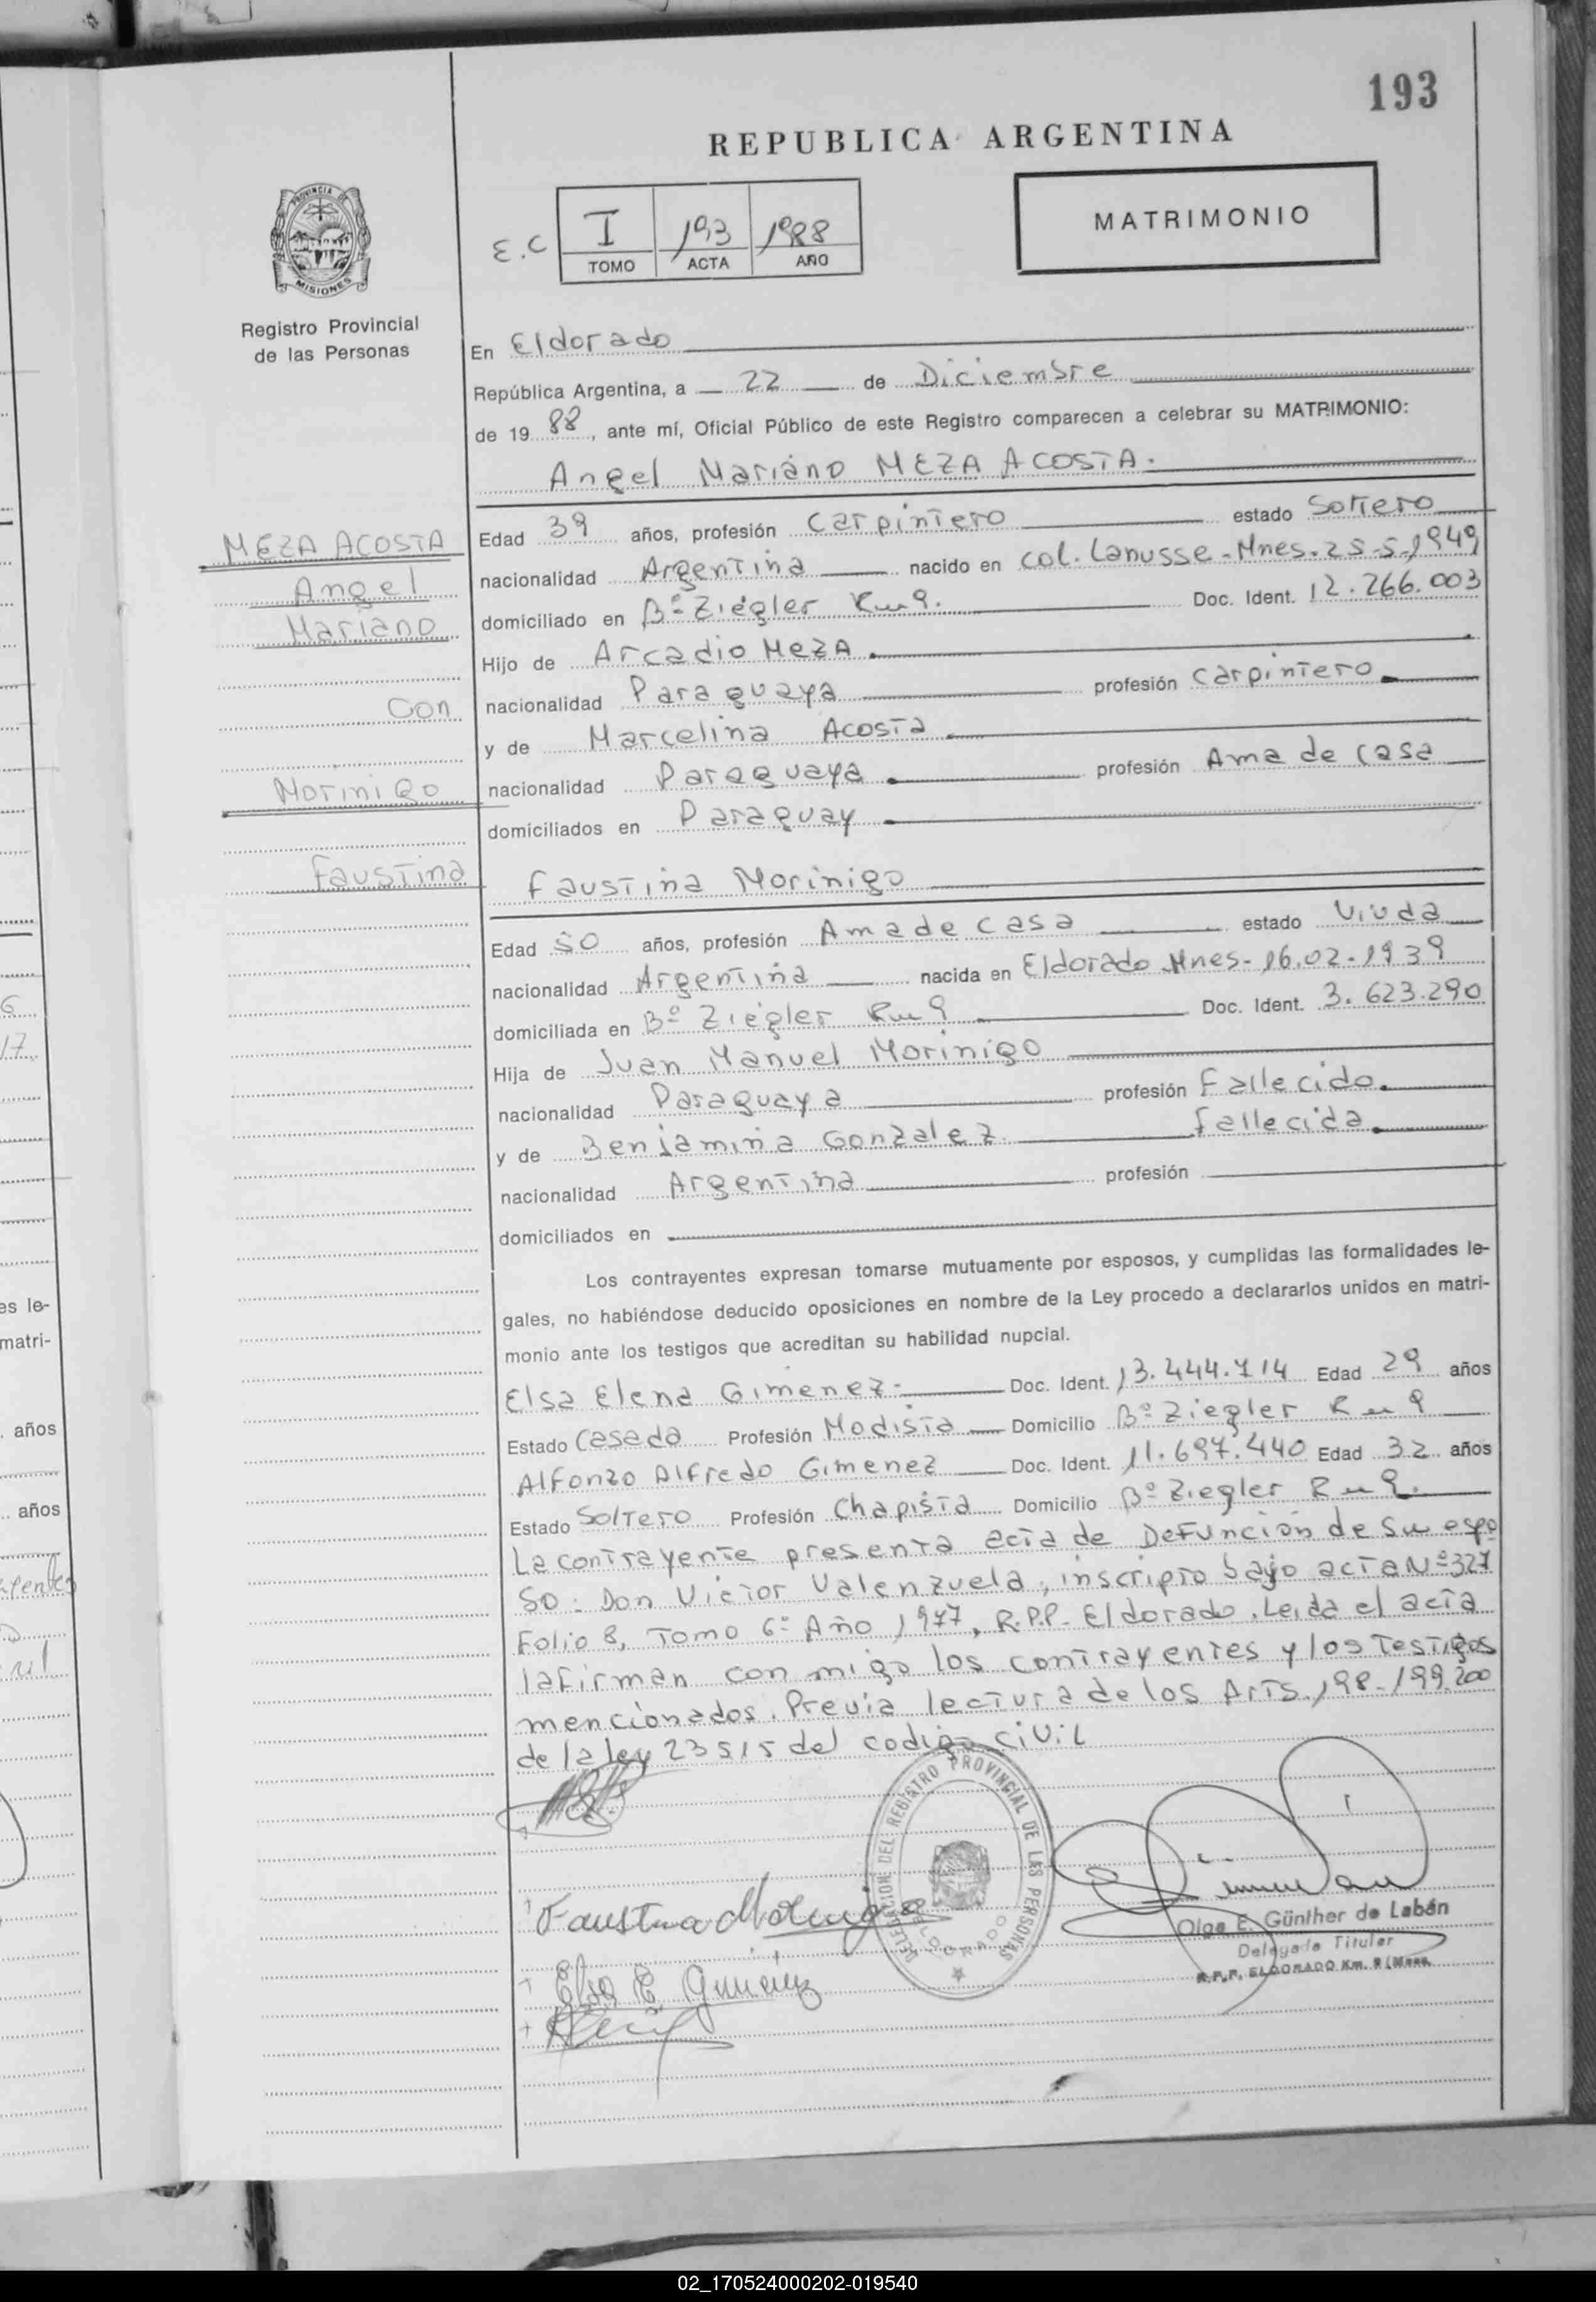 193
REPUBLICA ARGENTINA
PROVINCIA DE
MISIONES
E.C
I 193 1988
TOMO ACTA AÑO
MATRIMONIO
Registro Provincial
de las Personas
En Eldorado
República Argentina, a 22 de Diciembre
de 19 88, ante mí, Oficial Público de este Registro comparecen a celebrar su MATRIMONIO:
Angel Mariano MEZA ACOSTA.
MEZA ACOSTA
Angel
Mariano
Con
Morinigo
Faustina
Edad 39 años, profesión Carpintero estado Soltero
nacionalidad Argentina nacido en Col. Lanusse-Mnes-25-5-1949
domiciliado en Bº Ziegler Km 9. Doc. Ident. 12.266.003
Hijo de Arcadio MEZA.
nacionalidad Paraguaya profesión Carpintero
y de Marcelina Acosta
nacionalidad Paraguaya profesión Ama de casa
domiciliados en Paraguay
Faustina Morinigo
Edad 50 años, profesión Ama de casa estado Viuda
nacionalidad Argentina nacida en Eldorado Mnes-16.02-1939
domiciliada en Bº Ziegler Km 9 Doc. Ident. 3.623.290
Hija de Juan Manuel Morinigo
nacionalidad Paraguaya profesión Fallecido.
y de Benjamina Gonzalez fallecida.
nacionalidad Argentina profesión
domiciliados en
Los contrayentes expresan tomarse mutuamente por esposos, y cumplidas las formalidades le-
gales, no habiéndose deducido oposiciones en nombre de la Ley procedo a declararlos unidos en matri-
monio ante los testigos que acreditan su habilidad nupcial.
Elsa Elena Gimenez- Doc. Ident. 13.444.714 Edad 29 años
Estado Casada Profesión Modista Domicilio Bº Ziegler Km 9
Alfonzo Alfredo Gimenez Doc. Ident. 11.697.440 Edad 32 años
Estado Soltero Profesión Chapista Domicilio Bº Ziegler Km 9.
La contrayente presenta acta de Defunción de su espo
so: Don Victor Valenzuela, inscripto bajo acta Nº327
Folio 8, Tomo 6º Año 1977, R.P.P. Eldorado. Leida el acta
la firman con migo los contrayentes y los testigos
mencionados. Previa lectura de los Arts. 198-199.200
de la ley 23515 del codigo civil
DELEGACION DEL REGISTRO PROVINCIAL DE LAS PERSONAS
ELDORADO
Faustina Morinigo
Elsa E. Gimenez
Olga E. Günther de Labán
Delegada Titular
R.P.P. ELDORADO Km. 9 (Mnes.
6
17
es le-
matri-
años
años
02_170524000202-019540